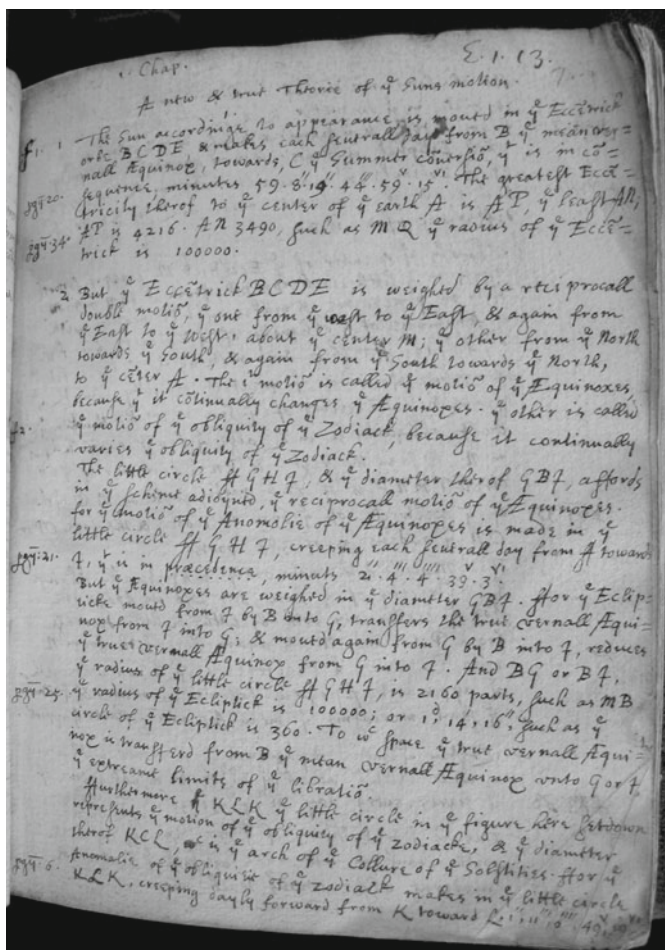 E. 1. 13.
1. Chap.
A new & true Theorie of yͤ Suns motion.
f. 1. 1 The Sun according to appearance is moued in yͤ Eccētrick
orbe BCDE & makes each seuerall day from B yͤ meān ver=
nall Æquinox, towards, C yͤ Summer cōuersiō, yͭ is in cō=
sequence, minutes 59. 8''. 19'''. 44''''. 59ᵛ. 15ᵛⁱ. The greatest Eccē=
tricity therof to yͤ center of yͤ earth A is AP, yͤ least AN,
pgi-20.
AP is 4216. AN 3490, such as MQ yͤ radius of yͤ Eccē=
pgi-34.
trick is 100000.
2 But yͤ Eccētrick BCDE is weighed by a reciprocall
double motiō, yͤ one from yͤ west to yͤ East & again from
yͤ East to yͤ West, about yͤ center M; yͤ other from yͤ North
towards yͤ South, & again from yͤ South towards yͤ North,
to yͤ cēter A. The 1ᵗ motiō is called yͤ motiō of yͤ Æquinoxes,
because yͭ it cōtinually changes yͤ Æquinoxes. yͤ other is called
f2. yͤ motiō of yͤ obliquity of yͤ Zodiack, because it continually
varies yͤ obliquity of yͤ Zodiack.
The little circle FGHI, & yͤ diameter therof GBI, affords
in yͤ scheme adioyned, yͤ reciprocall motiō of yͤ Æquinoxes.
for yͤ motiō of yͤ Anomolie of yͤ Æquinoxes is made in yͤ
little circle FGHI, creeping each seuerall day from F towards
pgi-21. I, yͭ is in præcedence, minuts 2''. 4'''. 4''''. 39ᵛ. 3ᵛⁱ.
But yͤ Æquinoxes are weighed in yͤ diameter GBI. ffor yͤ Eclip=
ticke moued from I by B into G, transfers the true vernall Æqui=
nox from I into G; & moued again from G by B into I, reduces
yͤ true vernall Æquinox from G into I. And BG or BI,
yͤ radius of yͤ little circle FGHI, is 2160 parts, such as MB
pgi-25. yͤ radius of yͤ Ecliptick is 100000; or 1ᵈ, 14', 16'', such as yͤ
circle of yͤ Ecliptick is 360. To wᶜʰ space yͤ true vernall Æqui=
nox is transferd from B yͤ mean vernall Æquinox vnto G or I
yͤ extreame limits of yͤ libratiō
ffurthermore KLK yͤ little circle in yͤ figure here set down
represents yͤ motion of yͤ obliquity of yͤ zodiacke, & yͤ diameter
therof KCL, is yͤ arch of yͤ Collure of yͤ Solstities. ffor yͤ
pgi-6. Anomalie of yͤ obliquitie of yͤ zodiack makes in yͤ little circle
KLK, creeping dayly forward from K toward L,